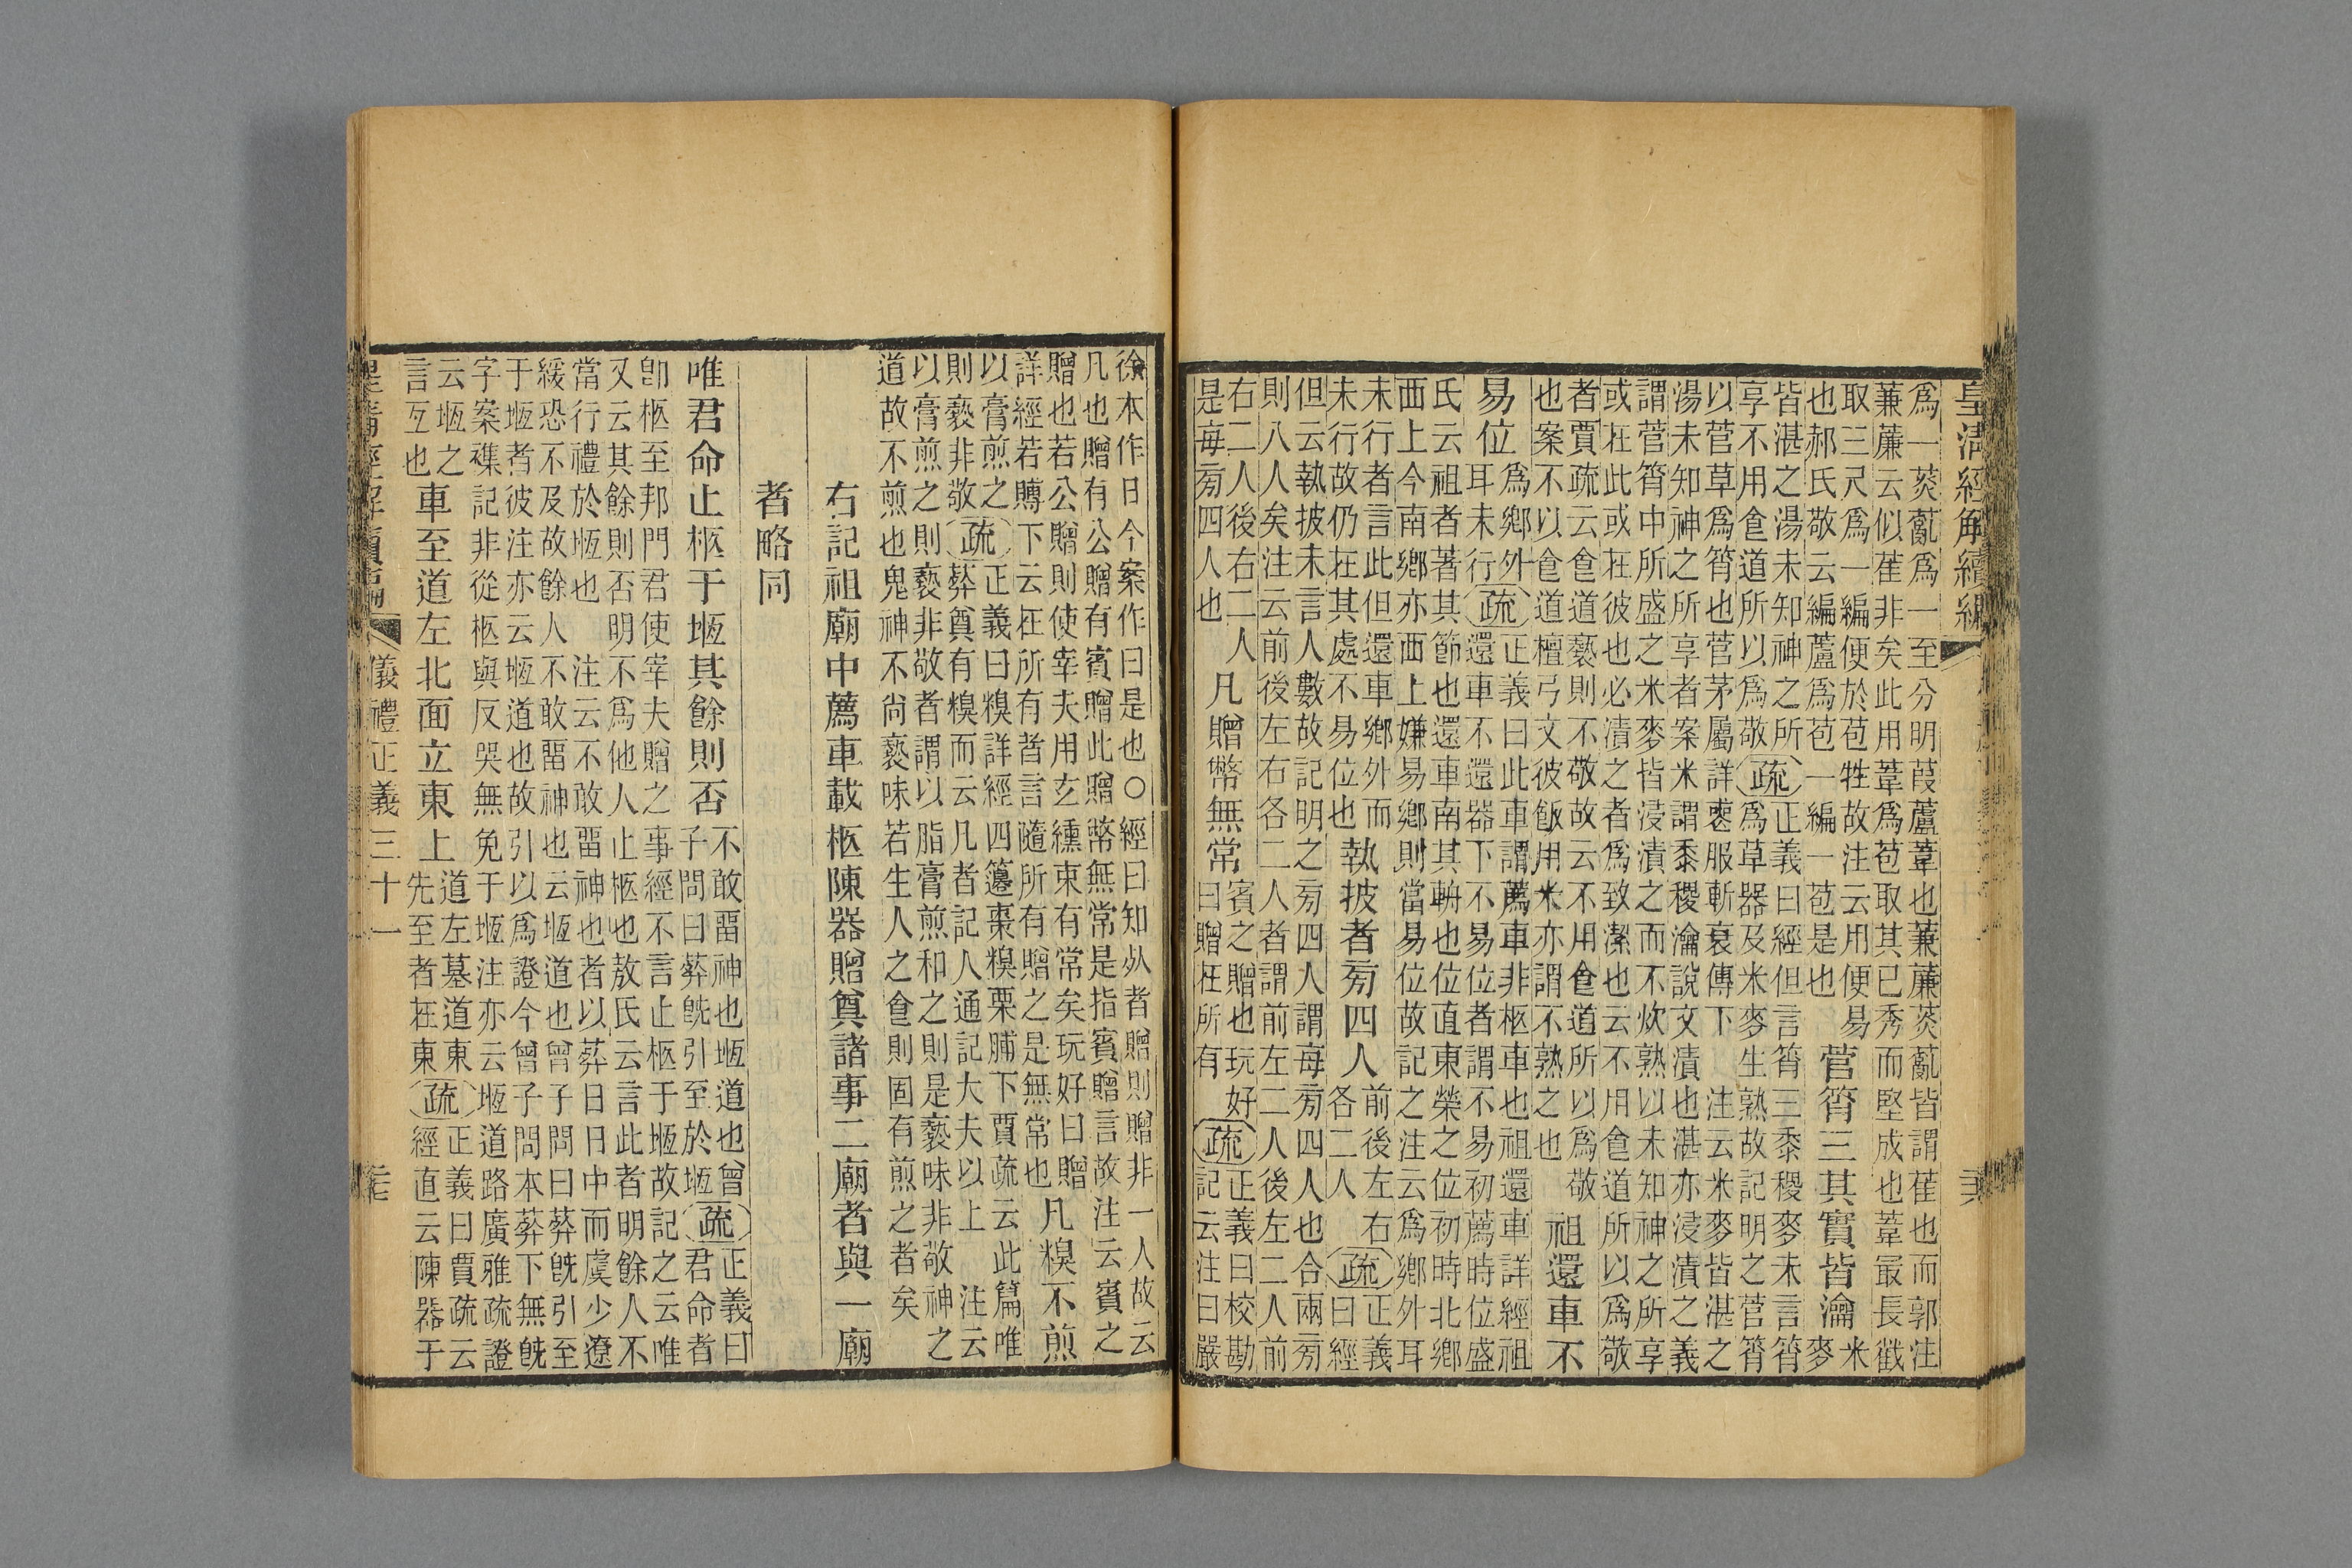 皇清經解續編
爲一菼薍爲一至分明葭蘆葦也蒹薕菼薍皆謂萑也而郭注
蒹薕云似萑非矣此用葦爲苞取其已秀而堅成也葦最長戳
取三尺爲一編便於苞牲故注云用便易
也郝氏敬云編蘆爲苞一編一苞是也
菅筲三其實皆瀹
米
麥
皆湛之湯未知神之所
享不用食道所以爲敬
疏
正義曰經但言筲三黍稷麥未言筲
爲草器及米麥生熟故記明之菅筲
以菅草爲筲也菅茅屬詳喪服斬衰傳下 注云米麥皆湛之
湯未知神之所享者案米謂黍稷瀹說文漬也湛亦浸漬之義
謂菅筲中所盛之米麥皆浸漬之而不炊熟以未知神之所享
或在此或在彼也必漬之者爲致潔也云不用食道所以爲敬
者賈疏云食道褻則不敬故云不用食道所以爲敬
也案不以食道檀弓文彼飯用米亦謂不熟之也
祖還車不
易位
爲鄉外
耳未行
疏
正義曰此車謂薦車非柩車也祖還車詳經祖
還車不還器下不易位者謂不易初薦時位盛
氏云祖者著其節也還車南其輈也位直東榮之位初時北鄉
西上今南鄉亦西上嫌易鄉則當易位故記之注云爲鄉外耳
未行者言此但還車鄉外而
未行故仍在其處不易位也
執披者旁四人
前後左右
各二人
疏
正義
曰經
但云執披未言人數故記明之旁四人謂每旁四人也合兩旁
則八人矣注云前後左右各二人者謂前左二人後左二人前
右二人後右二人
是每旁四人也
凡贈幣無常
賓之贈也玩好
曰贈在所有
疏
正義曰校勘
記云注曰嚴
徐本作日今案作曰是也○經曰知死者贈則贈非一人故云
凡也贈有公贈有賓贈此贈幣無常是指賓贈言故注云賓之
贈也若公贈則使宰夫用玄纁束有常矣玩好曰贈
詳經若賻下云在所有者言隨所有贈之是無常也
凡糗不煎
以膏煎之
則褻非敬
疏
正義曰糗詳經四籩棗糗栗脯下賈疏云此篇唯
葬奠有糗而云凡者記人通記大夫以上 注云
以膏煎之則褻非敬者謂以脂膏煎和之則是褻味非敬神之
道故不煎也鬼神不尚褻味若生人之食則固有煎之者矣
右記祖廟中薦車載柩陳器贈奠諸事二廟者與一廟
者略同
唯君命止柩于堩其餘則否
不敢畱神也堩道也曾
子問曰葬旣引至於堩
疏
正義曰
君命者
卽柩至邦門君使宰夫贈之事經不言止柩于堩故記之云唯
又云其餘則否明不爲他人止柩也敖氏云言此者明餘人不
當行禮於堩也 注云不敢畱神也者以葬日日中而虞少遼
緩恐不及故餘人不敢畱神也云堩道也曾子問曰葬旣引至
于堩者彼注亦云堩道也故引以爲證今曾子問本葬下無旣
字案襍記非從柩與反哭無免于堩注亦云堩道路廣雅疏證
云堩之
言亙也
車至道左北面立東上
道左墓道東
先至者在東
疏
正義曰賈疏云
經直云陳器于
皇清經解續編
儀禮正義三十一